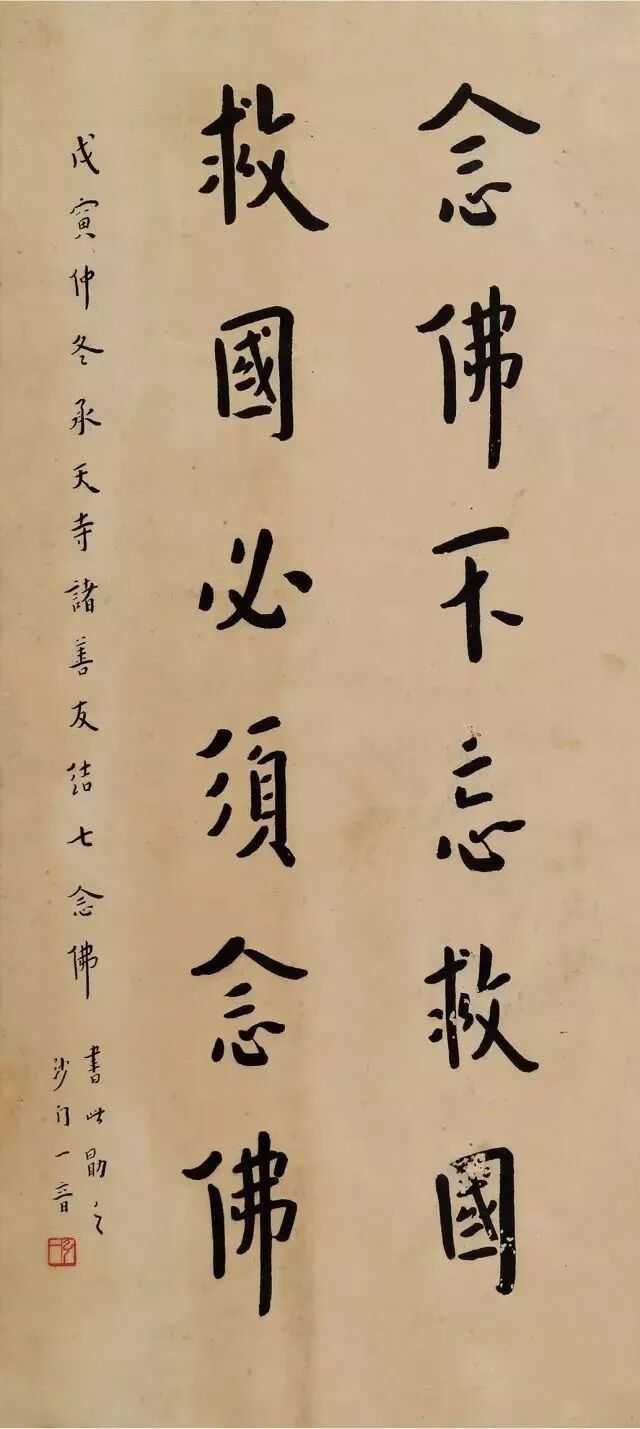 念佛不忘救國
救國必須念佛
戊寅仲冬承天寺諸善友結七念佛
書此勖之
沙门一音